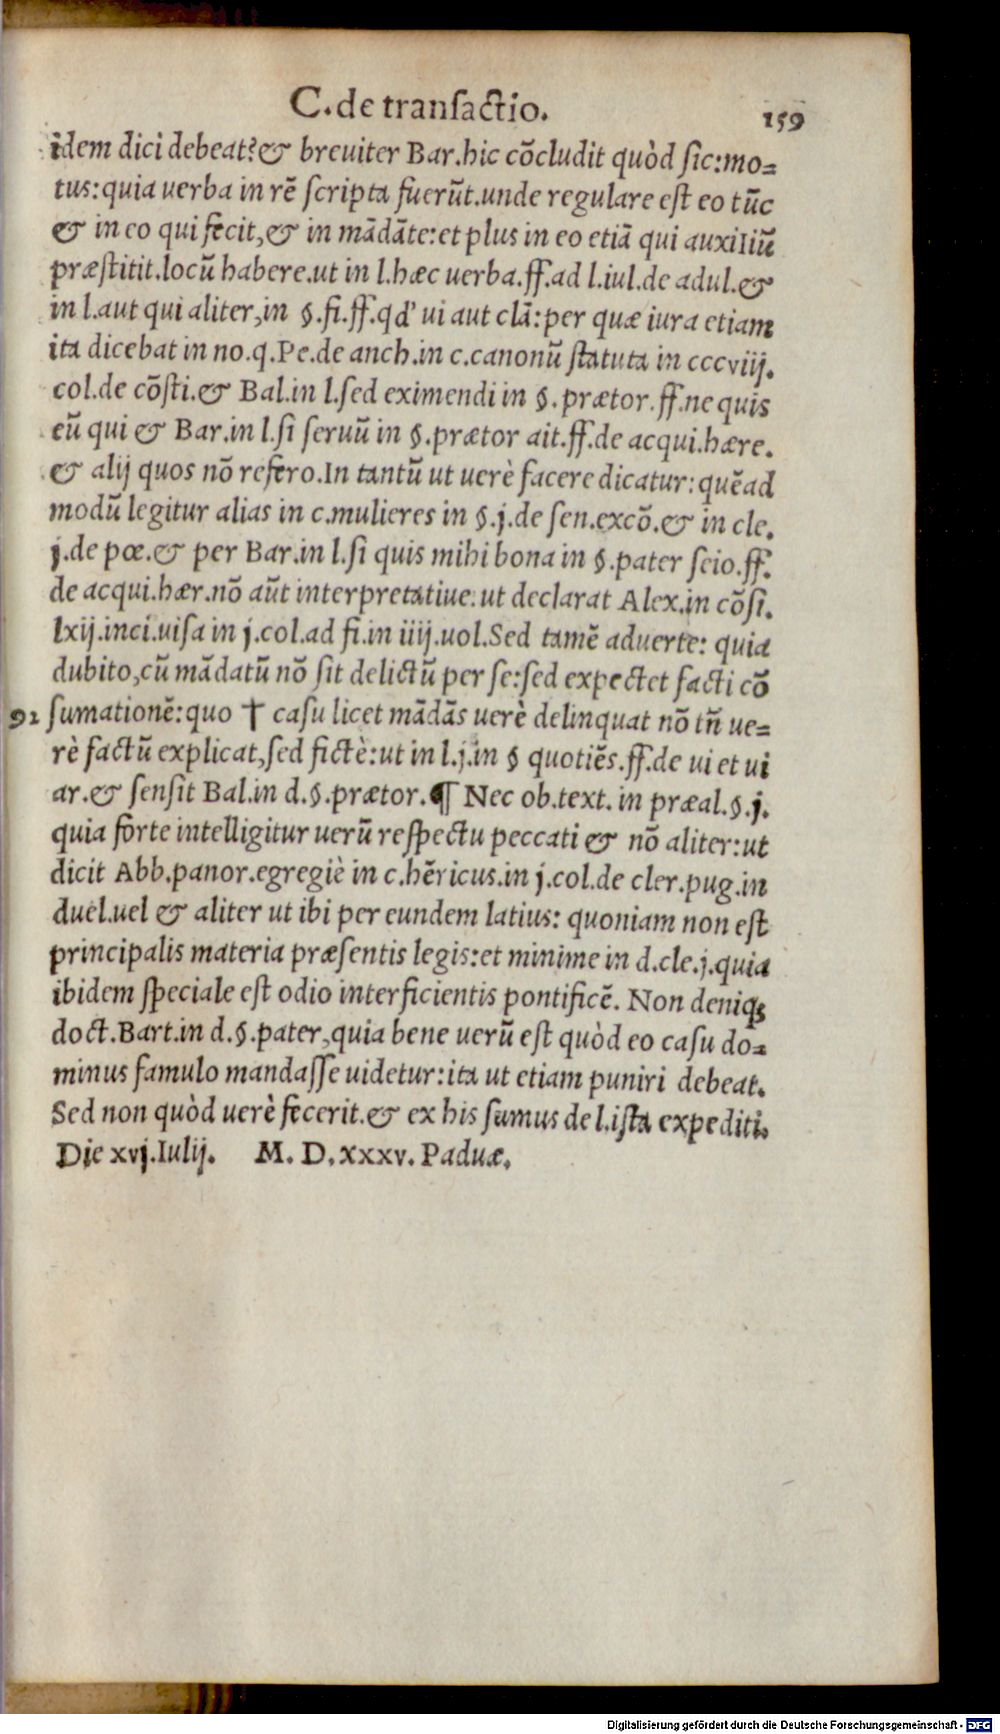 C. de transactio.
159
idem dici debeat? & breuiter Bar. hic cōcludit quòd sic: mo=
tus: quia uerba in rē scripta fuerūt. unde regulare est eo tūc
& in eo qui fecit, & in mādāte: et plus in eo etiā qui auxiliū
præstitit. locū habere. ut in l. hæc uerba. ff. ad l. iul. de adul. &
in l. aut qui aliter, in §. fi. ff. qd' ui aut clā: per quæ iura etiam
ita dicebat in no. q. Pe. de anch. in c. canonū statuta in cccviij.
col. de cōsti. & Bal. in l. sed eximendi in §. prætor. ff. ne quis
eū qui & Bar. in l. si seruū in §. prætor ait. ff. de acqui. hære.
& alij quos nō refero. In tantū ut uerè facere dicatur: quēad
modū legitur alias in c. mulieres in §. j. de sen. excō. & in cle.
j. de pœ. & per Bar. in l. si quis mihi bona in §. pater seio. ff.
de acqui. hær. nō aūt interpretatiue. ut declarat Alex. in cōsi.
lxij. inci. uisa in j. col. ad fi. in iiij. uol. Sed tamē aduerte: quia
dubito, cū mādatū nō sit delictū per se: sed expectet facti cō
92 sumationē: quo † casu licet mādās uerè delinquat nō tn̄ ue=
rè factū explicat, sed fictè: ut in l. j. in § quotiēs. ff. de ui et ui
ar. & sensit Bal. in d. §. prætor. ¶ Nec ob. text. in præal. §. j.
quia forte intelligitur uerū respectu peccati & nō aliter: ut
dicit Abb. panor. egregiè in c. hēricus. in j. col. de cler. pug. in
duel. uel & aliter ut ibi per eundem latius: quoniam non est
principalis materia præsentis legis: et minime in d. cle. j. quia
ibidem speciale est odio interficientis pontificē. Non deniqꝫ
doct. Bart. in d. §. pater, quia bene uerū est quòd eo casu do=
minus famulo mandasse uidetur: ita ut etiam puniri debeat.
Sed non quòd uerè fecerit. & ex his sumus de l. ista expediti.
Die xvj. Iulij. M. D. xxxv. Paduæ.
Digitalisierung gefördert durch die Deutsche Forschungsgemeinschaft - DFG